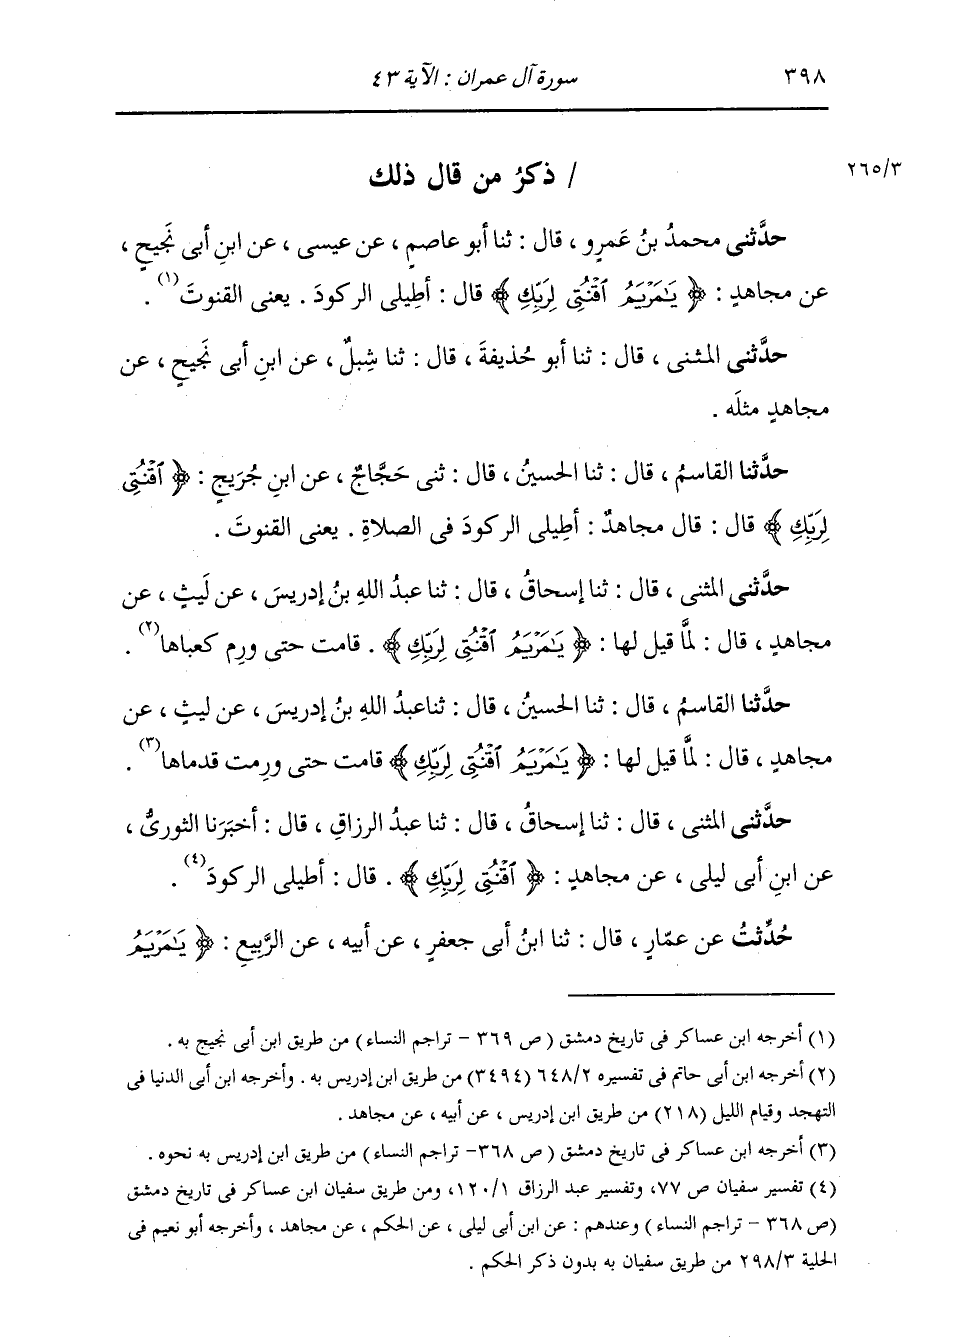 ٣٩٨ سورة آل عمران : الآية ٤٣
٢٦٥/٣ / ذكرُ من قال ذلك
حدَّثنى محمدُ بنُ عَمرٍو ، قال : ثنا أبو عاصمٍ ، عن عيسى ، عن ابنِ أبى نَجيحٍ ،
عن مجاهدٍ : ﴿ يَٰمَرْيَمُ ٱقْنُتِى لِرَبِّكِ ﴾ قال : أطِيلى الركودَ . يعنى القنوتَ(١) .
حدَّثنى المثنى ، قال : ثنا أبو حُذيفةَ ، قال : ثنا شِبلٌ ، عن ابنِ أبى نَجيحٍ ، عن
مجاهدٍ مثلَه .
حدَّثنا القاسمُ ، قال : ثنا الحسينُ ، قال : ثنى حَجَّاجٌ ، عن ابنِ جُرَيجٍ : ﴿ ٱقْنُتِى
لِرَبِّكِ ﴾ قال : قال مجاهدٌ : أطِيلى الركودَ فى الصلاةِ . يعنى القنوتَ .
حدَّثنى المثنى ، قال : ثنا إسحاقُ ، قال : ثنا عبدُ اللهِ بنُ إدريسَ ، عن لَيثٍ ، عن
مجاهدٍ ، قال : لمَّا قيل لها : ﴿ يَٰمَرْيَمُ ٱقْنُتِى لِرَبِّكِ ﴾ . قامت حتى ورِم كعباها(٢) .
حدَّثنا القاسمُ ، قال : ثنا الحسينُ ، قال : ثناعبدُ اللهِ بنُ إدريسَ ، عن ليثٍ ، عن
مجاهدٍ ، قال : لمَّا قيل لها : ﴿ يَٰمَرْيَمُ ٱقْنُتِى لِرَبِّكِ ﴾ قامت حتى ورِمت قدماها(٣) .
حدَّثنى المثنى ، قال : ثنا إسحاقُ ، قال : ثنا عبدُ الرزاقِ ، قال : أخبَرَنا الثورىُّ ،
عن ابنِ أبى ليلى ، عن مجاهدٍ : ﴿ ٱقْنُتِى لِرَبِّكِ ﴾ . قال : أطيلى الركودَ(٤) .
حُدِّثتُ عن عمّارٍ ، قال : ثنا ابنُ أبى جعفرٍ ، عن أبيه ، عن الرَّبيعِ : ﴿ يَٰمَرْيَمُ
(١) أخرجه ابن عساكر فى تاريخ دمشق ( ص ٣٦٩ - تراجم النساء ) من طريق ابن أبى نجيح به .
(٢) أخرجه ابن أبى حاتم فى تفسيره ٦٤٨/٢ (٣٤٩٤) من طريق ابن إدريس به . وأخرجه ابن أبى الدنيا فى
التهجد وقيام الليل (٢١٨) من طريق ابن إدريس ، عن أبيه ، عن مجاهد .
(٣) أخرجه ابن عساكر فى تاريخ دمشق ( ص ٣٦٨- تراجم النساء ) من طريق ابن إدريس به نحوه .
(٤) تفسير سفيان ص ٧٧، وتفسير عبد الرزاق ١٢٠/١، ومن طريق سفيان ابن عساكر فى تاريخ دمشق
(ص ٣٦٨ - تراجم النساء ) وعندهم : عن ابن أبى ليلى ، عن الحكم ، عن مجاهد ، وأخرجه أبو نعيم فى
الحلية ٢٩٨/٣ من طريق سفيان به بدون ذكر الحكم .